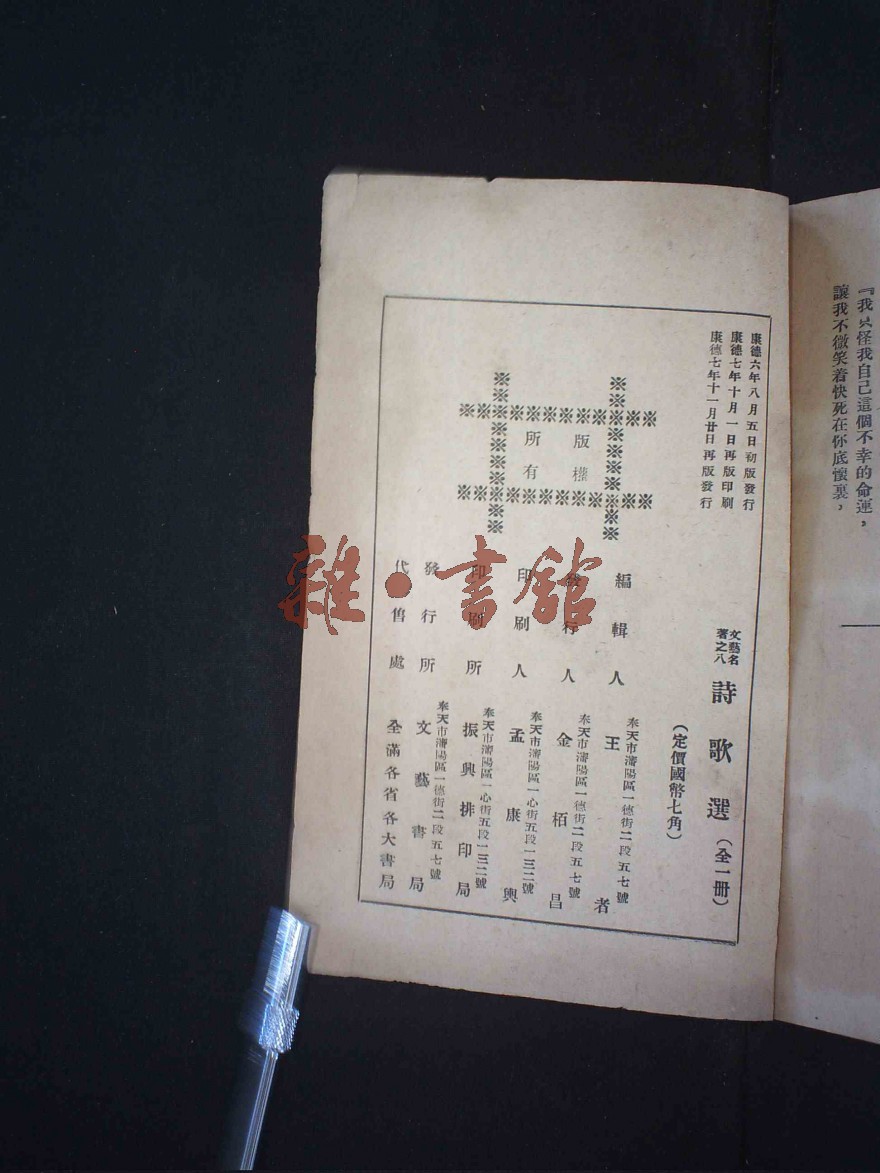 『我只怪我自己這個不幸的命運，
讓我不微笑着快死在你底懷裏，
康德六年八月五日初版發行
康德七年十月一日再版印刷
康德七年十一月廿日再版發行
文藝名著之八 詩歌選（全一冊）
（定價國幣七角）
版權所有
奉天市瀋陽區一德街二段五七號
編輯人 王者
奉天市瀋陽區一德街二段五七號
發行人 金栢昌
奉天市瀋陽區一心街五段一三二號
印刷人 孟康興
奉天市瀋陽區一心街五段一三二號
印刷所 振興排印局
奉天市瀋陽區一德街二段五七號
發行所 文藝書局
代售處 全滿各省各大書局
雜·書館